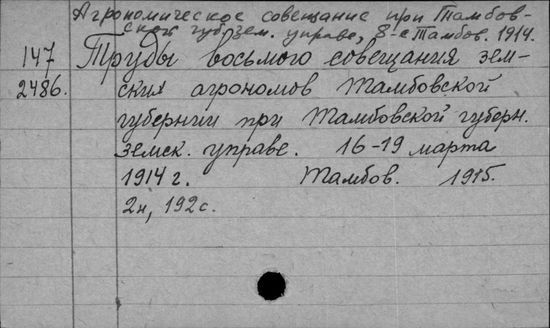 Агрономическое совещание при Тамбов-
ской губ. зем. управе, 8-е Тамбов. 1914.
147 Труды восьмого совещания зем-
2486. ских агрономов Тамбовской
губернии при Тамбовской губерн.
земск. управе. 16-19 марта
1914 г. Тамбов. 1915.
2н, 192 с.